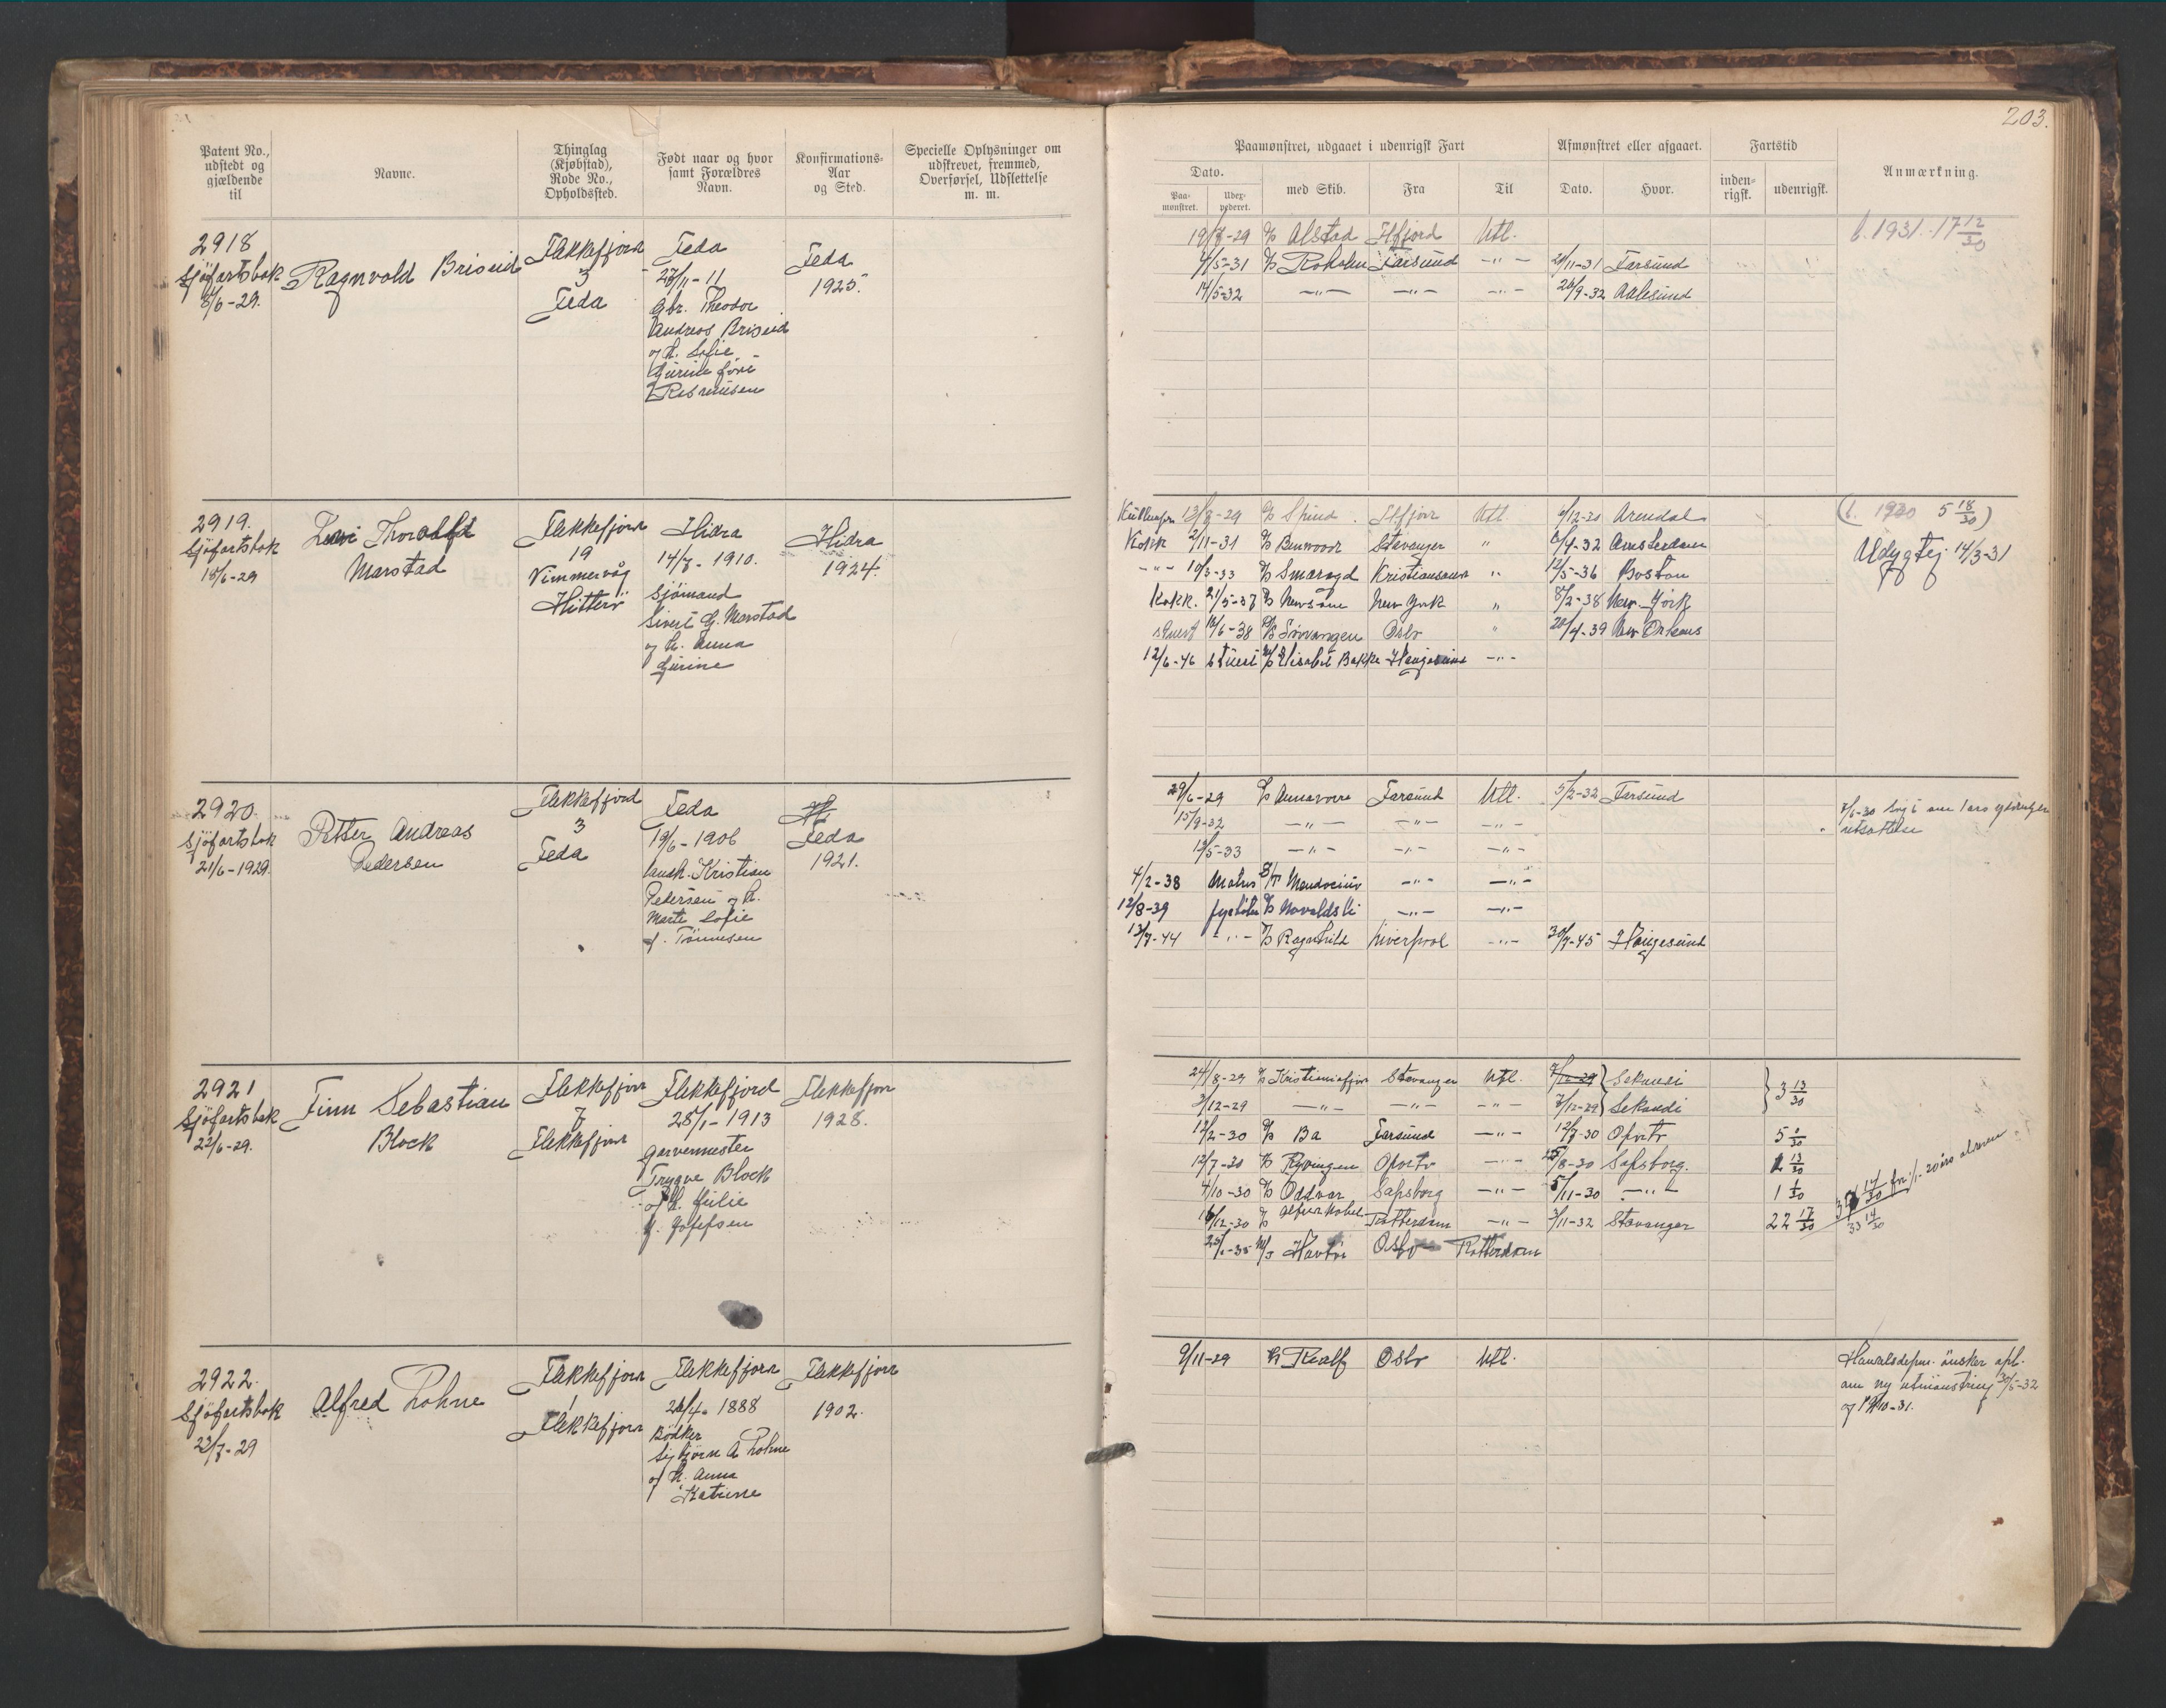 203.
Patent No., udstedt og gjældende til
Navne.
Thinglag (Kjøbstad), Rode No., Opholdssted.
Født naar og hvor samt Forældres Navn.
Konfirmations-Aar og Sted.
Specielle Oplysninger om udskrevet, fremmed, Overførsel, Udslettelse m. m.
Paamønstret, udgaaet i udenrigsk Fart
Afmønstret eller afgaaet.
Fartstid
Anmærkning.
Dato.
med Skib.
Fra
Til
Dato.
Hvor.
inden-rigsk.
udenrigsk.
Paa-mønstret.
2918
Sjøfartsbok
8/6-29.
Ragnvold Briseid
Flekkefjord
3
Feda
Feda
28/11-11
Gbr. Theodor
Andreas Briseid
og h. Sofie
Gurine føre
Rasmusen
Feda
1925.
Alstad Utl.
4/5-31 Farsund -"- 21/11-31 Farsund
14/5-32 -"- -"- -"- 26/9-32 Aalesund
b. 1931. 17 12/30
2919.
Sjøfartsbok
18/6-29
Levi Thoralfd
Marstad
Flekkefjord
19
Vimmervåg
Hitterö
Hidra
14/8-1910.
Sjömand
Sivert G. Marstad
og h. Anna
Gurine
Hidra
1924.
13/8-29 Spind Utl. Arendal
(b. 1930 5 18/30)
Kokk 2/11-31 Benwood Stavanger " 6/4-32 Amsterdam
Udygtig 14/3-31
-"- 10/3-33 Smaragd Kristiansand " 12/5-36 Boston
Kokk. 21/5-37 New York " 8/2-38 New-York
Stuert 16/6-38 Sörvangen Oslo " 20/4-39 New Orleans
12/6-46 Stuert M/S Elisabet Bakke Haugesund -"-
2920.
Sjøfartsbok
21/6-1929.
Petter Andreas
Pedersen
Flekkefjord
3
Feda
Feda
19/6-1906
Kristian
Petersen og h.
Marte Sofie
f. Tönnesen
Feda
1921.
29/6-29 Farsund Utl. 5/2-32 Farsund
15/9-32 -"- -"- -"-
12/5-33 -"- -"- -"-
4/2-38 Matros Mendocino -"- -"-
12/8-39 -"- -"-
13/7-44 -"- Ragnhild Liverpool -"- 30/7-45 Haugesund
7/6-30 om 1 års
utsettelse
2921
Sjøfartsbok
22/6-29.
Finn Sebastian
Block
Flekkefjord
7
Flekkefjord
Flekkefjord
28/1-1913
Garvermester
Trygve Block
og h. Julie
f. Josefsen
Flekkefjord
1928.
24/8-29 Kristianiafjord Stavanger Utl. Sekondi
3/12-29 -"- -"- -"- 7/12-29 Sekondi 3 13/30
12/2-30 Ba Farsund -"- 12/7-30 Oporto 5 1/30
12/7-30 Ryvingen Oporto -"- 25/8-30 Sapsborg. 1 13/30
4/10-30 Oddvar Sapsborg -"- 5/11-30 -"- 1 1/30
16/12-30 Alfred Nobel Rotterdam -"- 3/11-32 Stavanger 22 17/30
25/1-35 M/S Havtör Oslo Rotterdam
14/30 før 1/1. 20 års alderen
33 14/30
2922.
Sjøfartsbok
23/7-29
Alfred Lohne
Flekkefjord
1
Flekkefjord
Flekkefjord
26/4-1888
Bödker
Sigbjørn A Lohne
og h. Anna
Katrine
Flekkefjord
1902.
9/11-29 Realf Oslo Utl.
Handelsdepm. ønsker opl.
om ny utmönstring 30/5-32